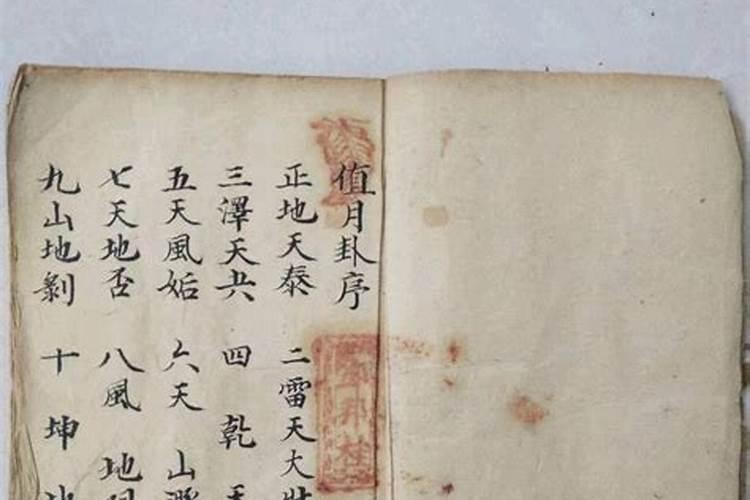 值月卦序
正地天泰 二雷天大
三澤天夬 四乾
五天風姤 六天山
七天地否 八風地
九山地剝 十坤